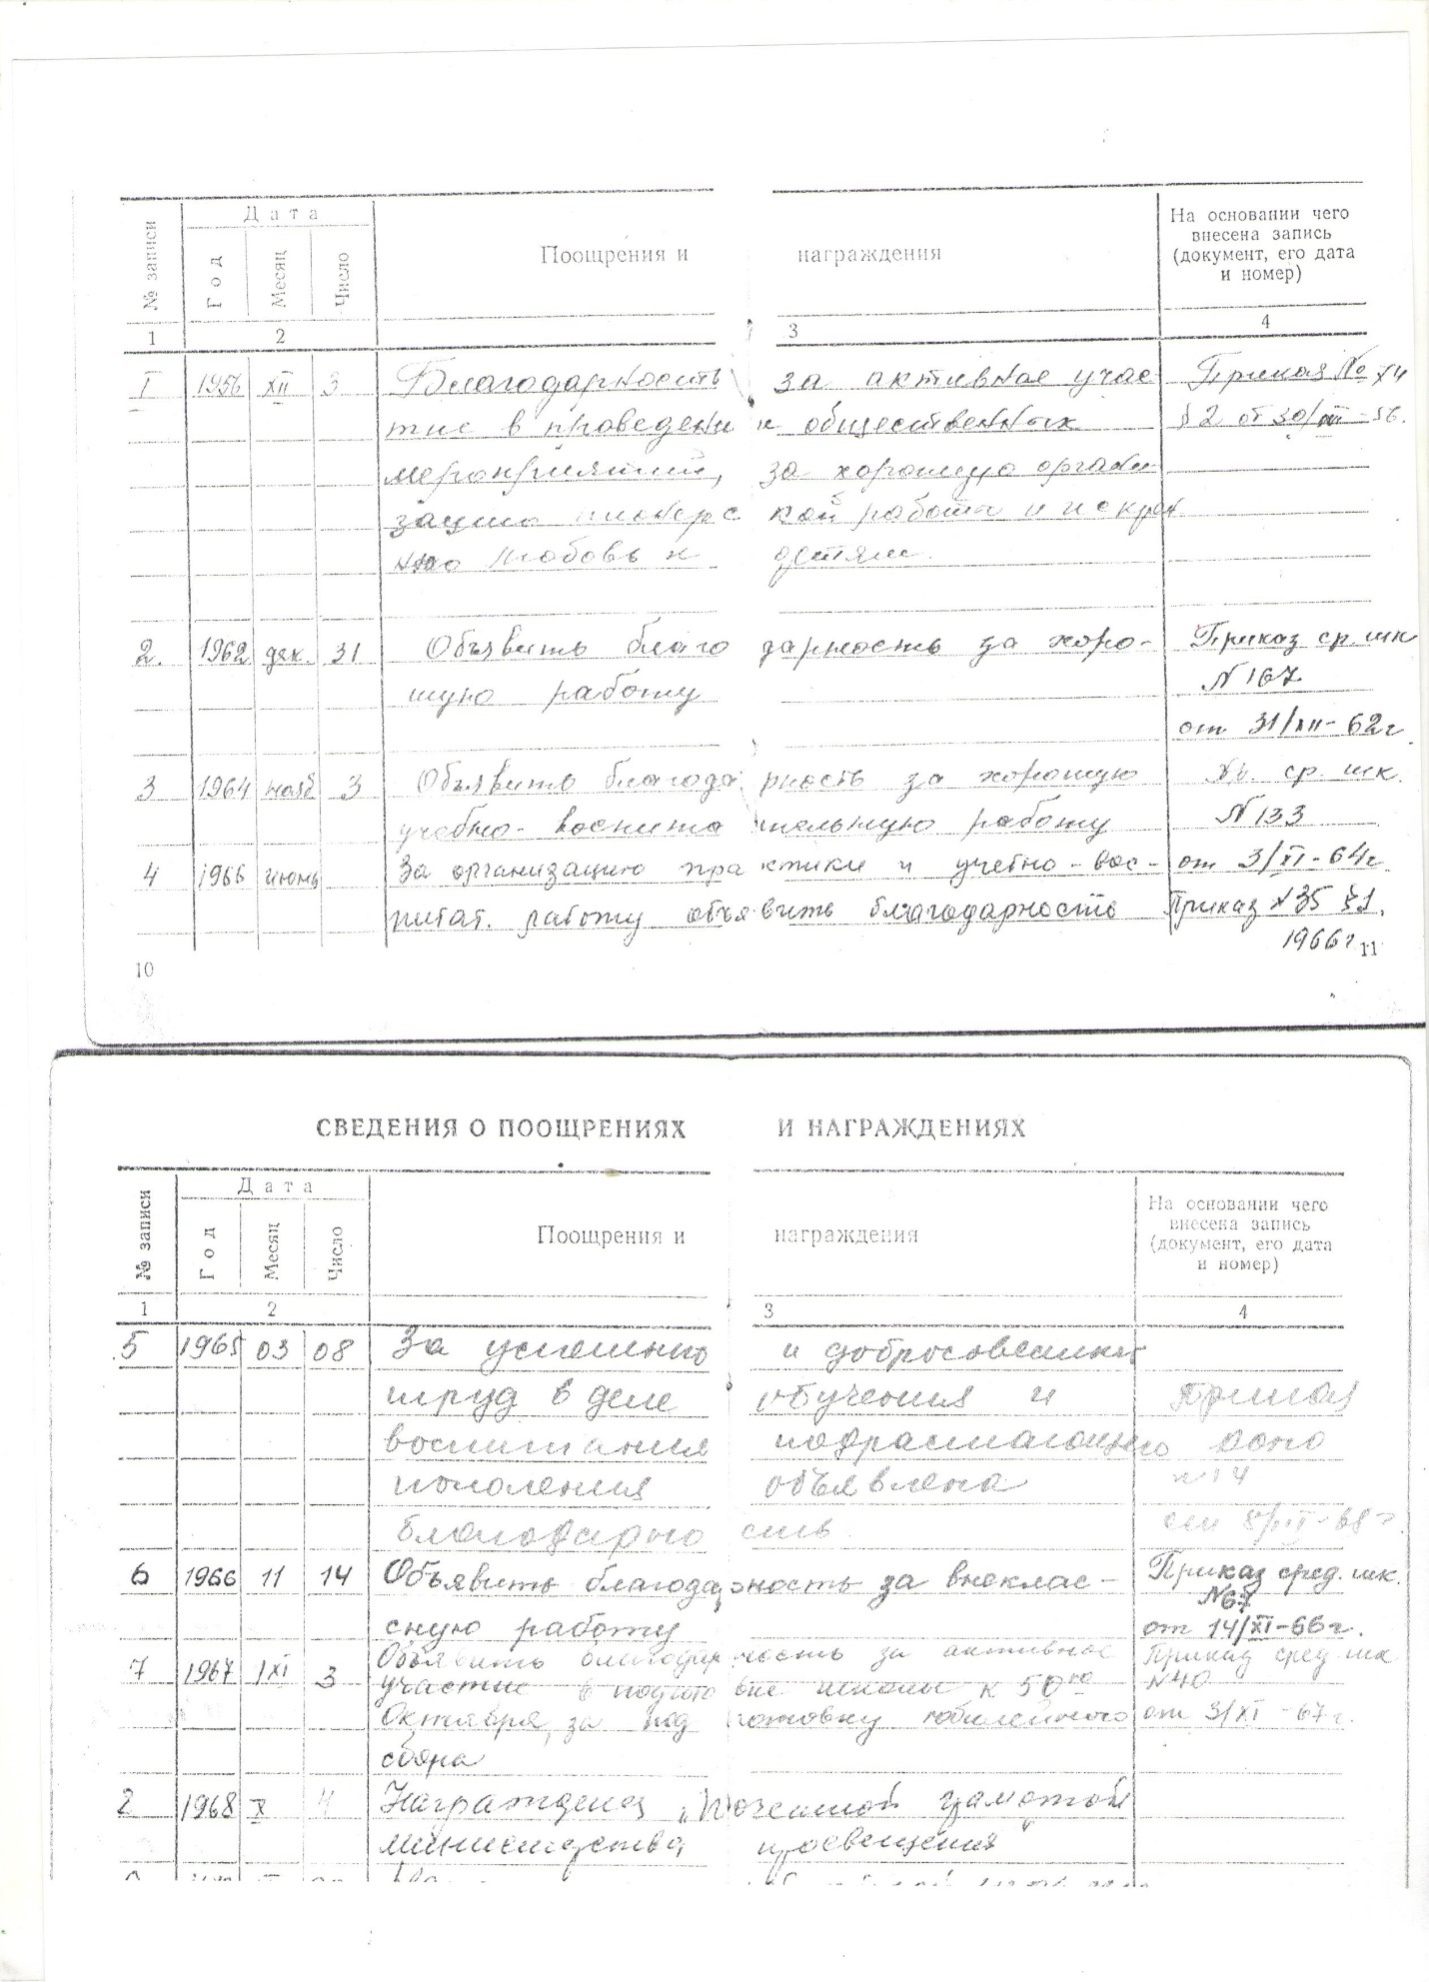 № записи
Дата
Год
Месяц
Число
Поощрения и награждения
На основании чего
внесена запись
(документ, его дата
и номер)
1 2 3 4
I 1956 XII 3 Благодарность за активное учас Приказ №
тие в проведении общественных § 2 от 30/XII-56.
мероприятий, за хорошую органи-
зацию пионерской работы и искрен
нюю любовь к детям.
2. 1962 дек. 31 Объявить благодарность за хоро- Приказ ср. шк
шую работу N 167
от 31/XII-62г
3 1964 нояб 3 Объявить благодарность за хорошую ср. шк.
учебно-воспитательную работу N 133
4 1966 июнь За организацию практики и учебно-вос- от 3/XI-64г
питат. работу объявить благодарность Приказ N35 §1,
1966г
10 11
СВЕДЕНИЯ О ПООЩРЕНИЯХ И НАГРАЖДЕНИЯХ
№ записи
Дата
Год
Месяц
Число
Поощрения и награждения
На основании чего
внесена запись
(документ, его дата
и номер)
1 2 3 4
5 1965 03 08 За и
труд в деле обучения и Приказ
воспитания подрастающего
поколения объявлена
благодарность
6 1966 11 14 Объявить благодарность за внеклас- Приказ сред. шк.
N67
сную работу от 14/XI-66г.
7 1967 XI 3 Объявить благодарность за активное Приказ сред шк
участие в подготовке школы к 50ю N40
Октября, за подготовку юбилейного от 3/XI-67г.
сбора
1968 X Награждена „Почетной грамотой
министерства просвещения"